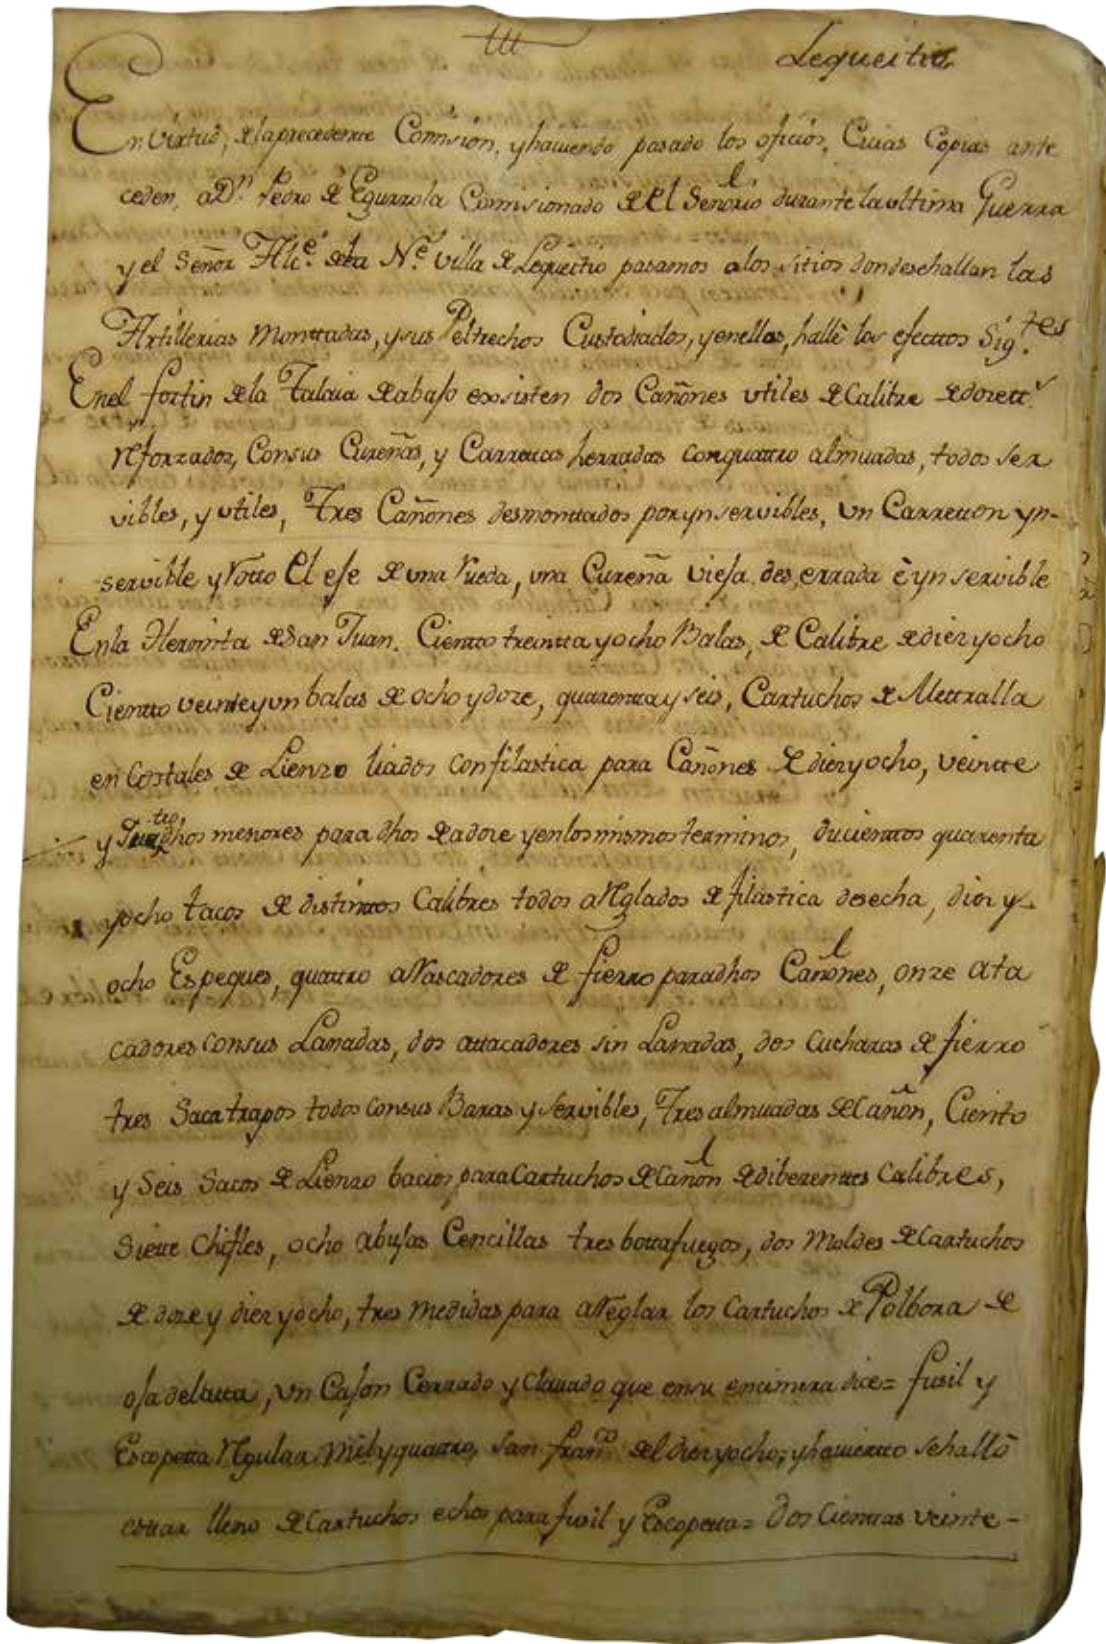 Lequeitio
En Virtud, de la precedente Comision, y haviendo pasado los oficios, Cuias Copias ante
ceden, a Dn. Pedro de Eguzzola Comisionado de el Señorio durante la ultima Guerra
y el Señor Alce. de la Ne. Villa de Lequeitio pasamos a los sitios donde se hallan las
Artillerias Monttadas, y sus Peltrechos Custodiados, y en ellas, hallè los efecttos Sigtes.
En el fortin de la Talaia de abajo exsisten dos Cañones utiles de Calibre de
reforzados, Con sus Cureñas, y Carretas herradas con quattro almuadas, todos ser
vibles, y utiles, Tres Cañones desmonttados por ynservibles, un Carretton yn-
servible y rotto El eje de una rueda, una Cureña vieja deserrada è ynservible
En la Hermita de San Juan. Ciento treintta y ocho Balas, de Calibre de diez y ocho
Cientto veinte y un balas de ocho y doze, quarentta y seis, Cartuchos de Mettralla
en Costales de Lienzo liados con filastica para Cañones de diez y ocho, veintte
y dhos menores para dhos de a doze y en los mismos terminos, ducienttos quarenta
y ocho tacos de distinttos Calibres todos arreglados de filastica desecha, diez y
ocho Espeques, quattro arrascadores de fierro para dhos Cañones, onze ata
cadores con sus Lanadas, dos attacadores sin Lanadas, dos cucharas de fierro
tres Sacatrapos todos con sus Baras y servibles, Tres almuadas de Cañon, Ciento
y Seis Sacos de Lienzo bacios para Cartuchos de Cañon de diberenttes Calibres,
Siette Chifles, ocho abujas Cencillas tres bottafuegos, dos Moldes de Cartuchos
de doze y diez y ocho, tres medidas para arreglar los Cartuchos de Polbora de
oja delatta, un Cajon Cerrado y Clavado que en su encimera dice= fusil y
Escopetta regular, Mil y quattro, San Franco. del diez y ocho; y havierto se hallò
esttar lleno de Cartuchos echos para fusil y Escopetta= Dos Cienttas veinte-